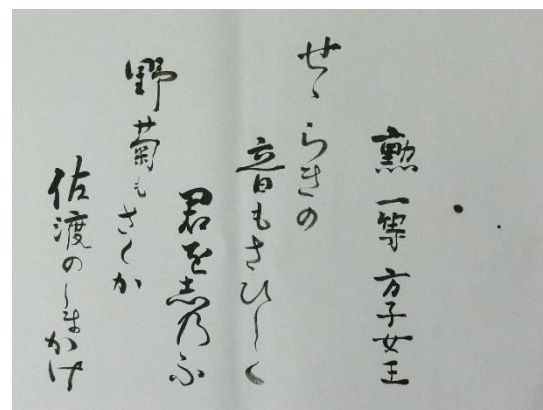 勲一等方子女王
せゝらきの
音もさひしく
君を志乃ふ
野菊もさくか
佐渡のしまかけ